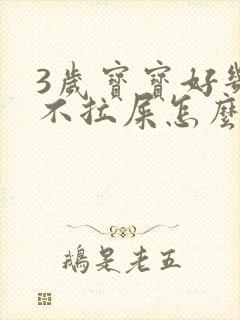 3歲寶寶好幾
不拉屎怎麼
鵝是老五